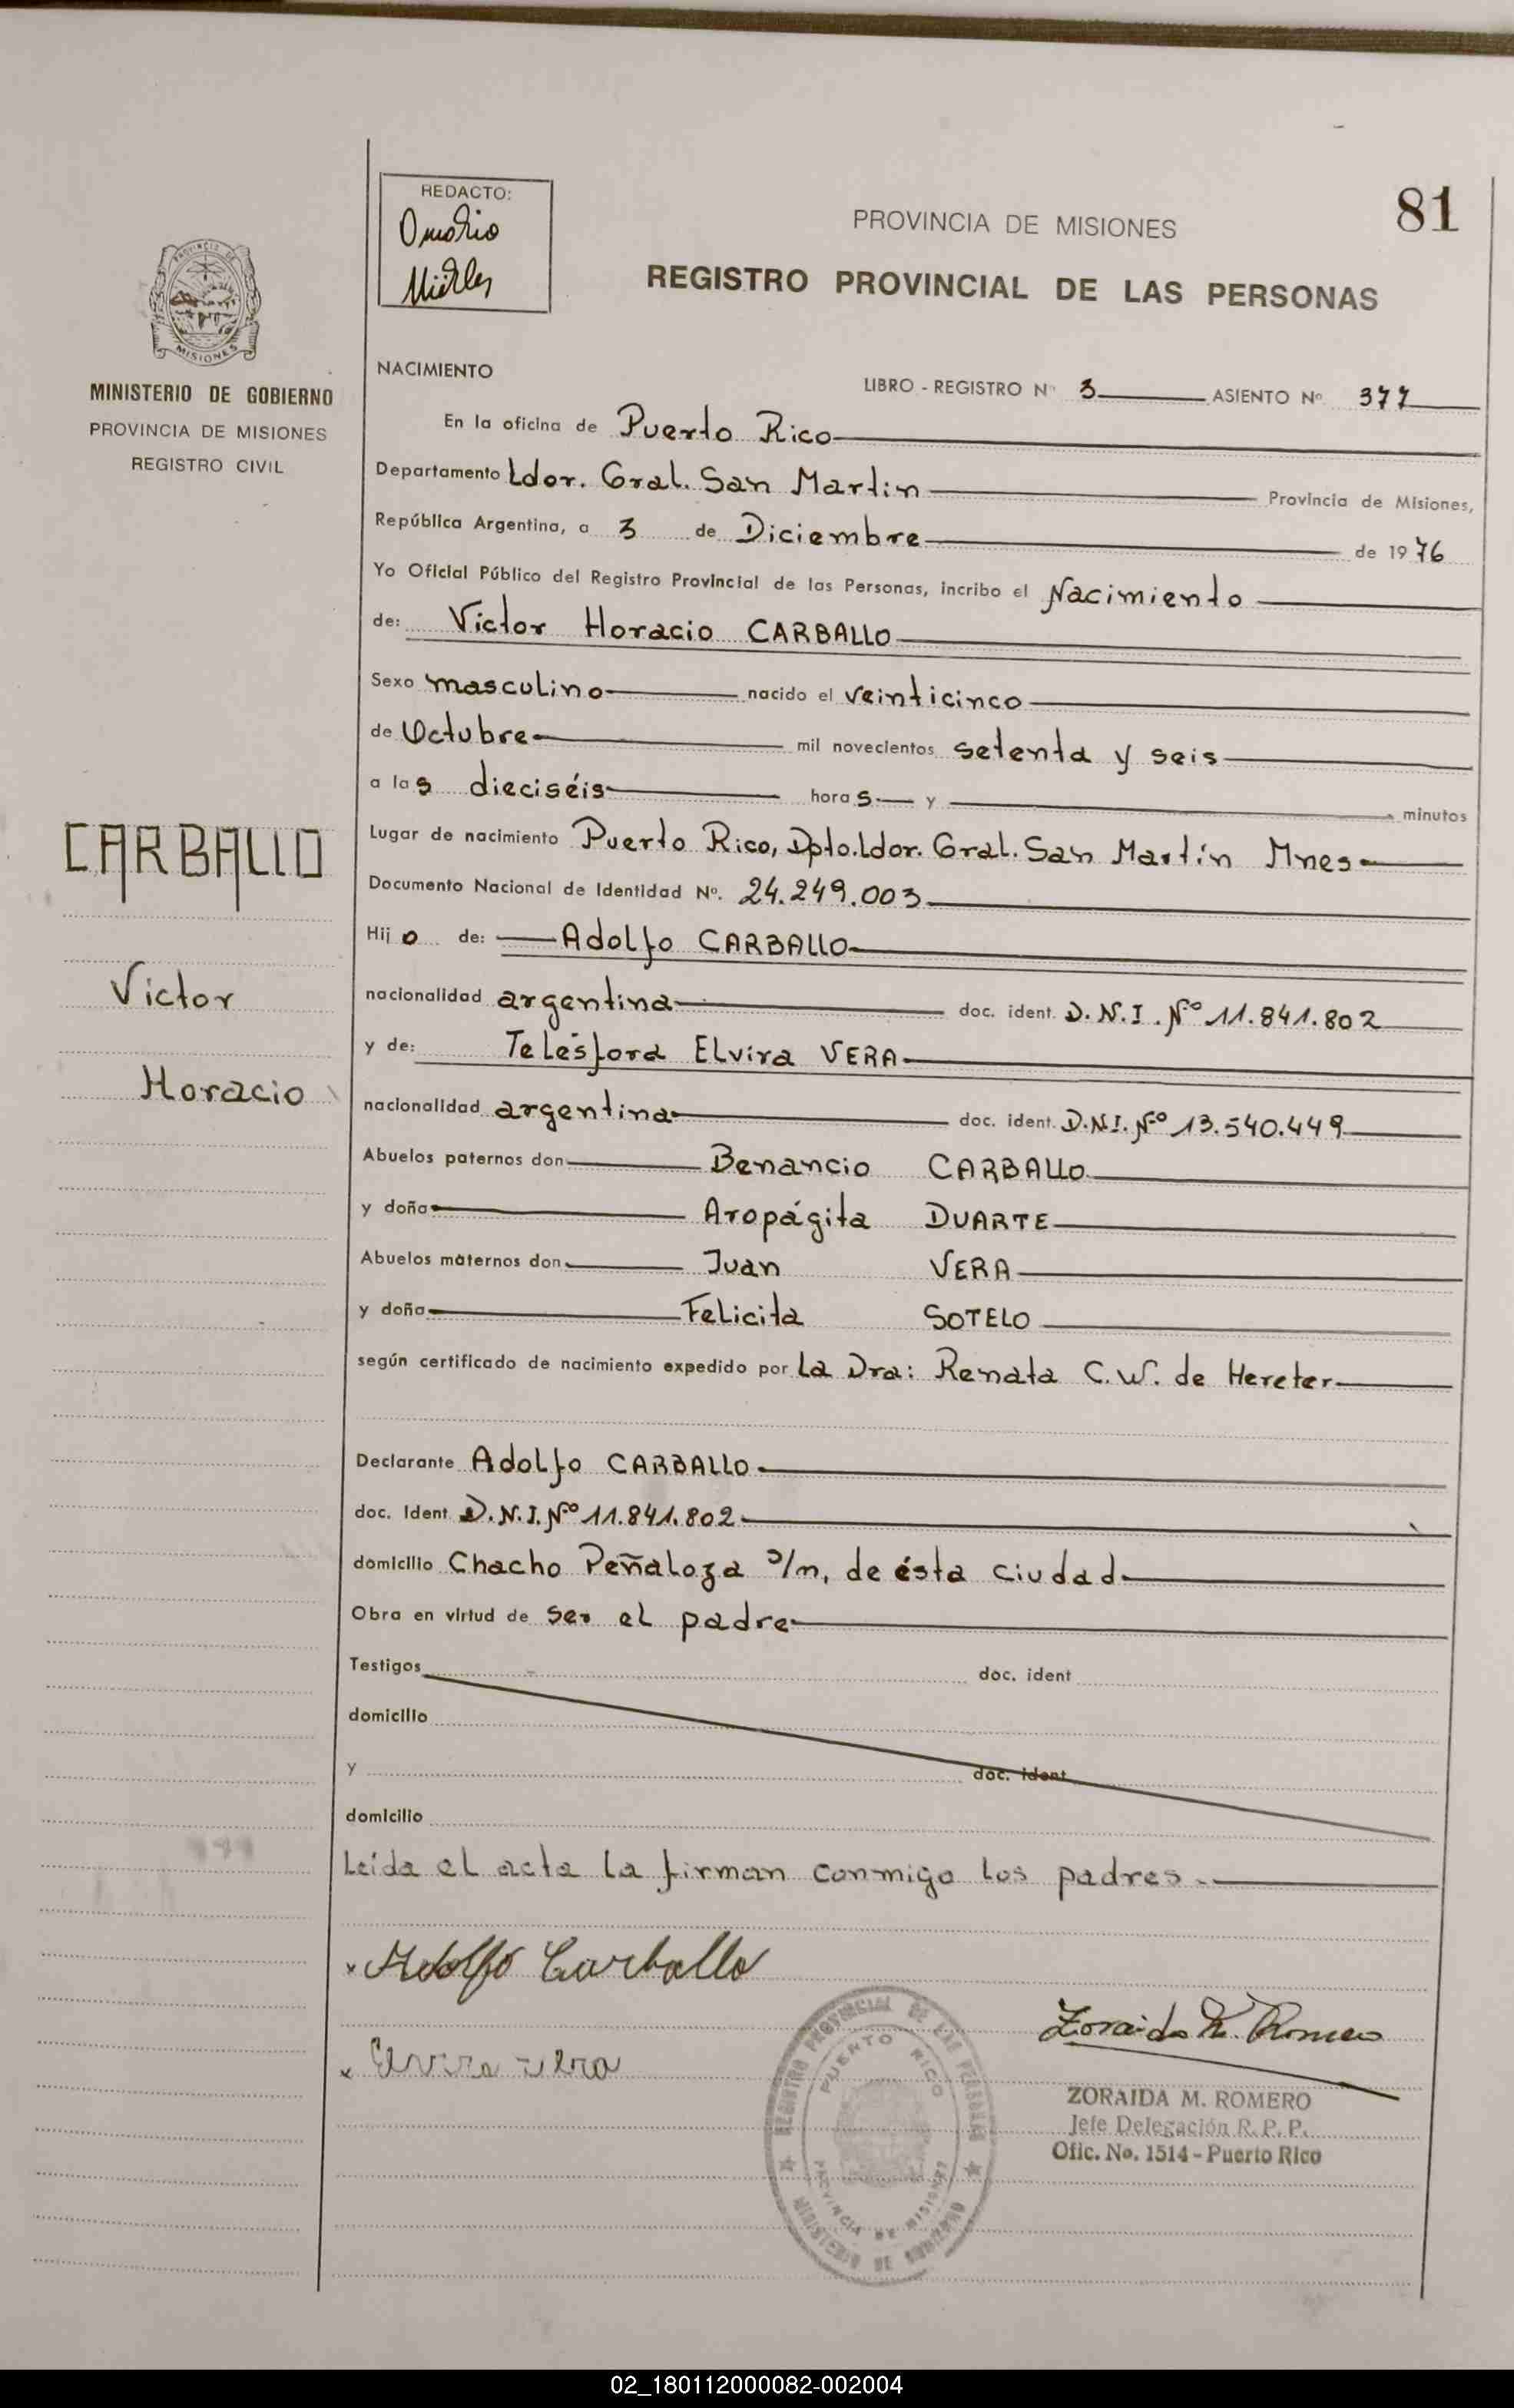 81
REDACTO:
PROVINCIA DE MISIONES
REGISTRO PROVINCIAL DE LAS PERSONAS
PROVINCIA DE
MISIONES
MINISTERIO DE GOBIERNO
PROVINCIA DE MISIONES
REGISTRO CIVIL
CARBALLO
Victor
Horacio
NACIMIENTO
LIBRO - REGISTRO Nº 3 ASIENTO Nº 377
En la oficina de Puerto Rico
Departamento Ldor. Gral. San Martin Provincia de Misiones,
República Argentina, a 3 de Diciembre de 1976
Yo Oficial Público del Registro Provincial de las Personas, incribo el Nacimiento
de: Victor Horacio CARBALLO
Sexo masculino nacido el veinticinco
de Octubre mil novecientos setenta y seis
a las dieciséis horas y minutos
Lugar de nacimiento Puerto Rico, Dpto. Ldor. Gral. San Martín Mnes
Documento Nacional de Identidad Nº. 24.249.003
Hijo de: Adolfo CARBALLO
nacionalidad argentina doc. ident. D.N.I. Nº 11.841.802
y de: Telésfora Elvira VERA
nacionalidad argentina doc. ident. D.N.I. Nº 13.540.449
Abuelos paternos don Benancio CARBALLO
y doña Aropágita DUARTE
Abuelos maternos don Juan VERA
y doña Felicita SOTELO
según certificado de nacimiento expedido por La Dra: Renata C.W. de Hereter
Declarante Adolfo CARBALLO
doc. Ident D.N.I. Nº 11.841.802
domicilio Chacho Peñaloza s/n, de ésta ciudad
Obra en virtud de ser el padre
Testigos doc. ident
domicilio
y doc. ident
domicilio
Leída el acta la firman conmigo los padres.
x Adolfo Carballo
Zoraida M. Romero
x Elvira vera
REGISTRO PROVINCIAL DE LAS PERSONAS
PUERTO RICO
PROVINCIA DE MISIONES
MINISTERIO DE GOBIERNO
ZORAIDA M. ROMERO
Jefe Delegación R. P. P.
Ofic. No. 1514 - Puerto Rico
02_180112000082-002004